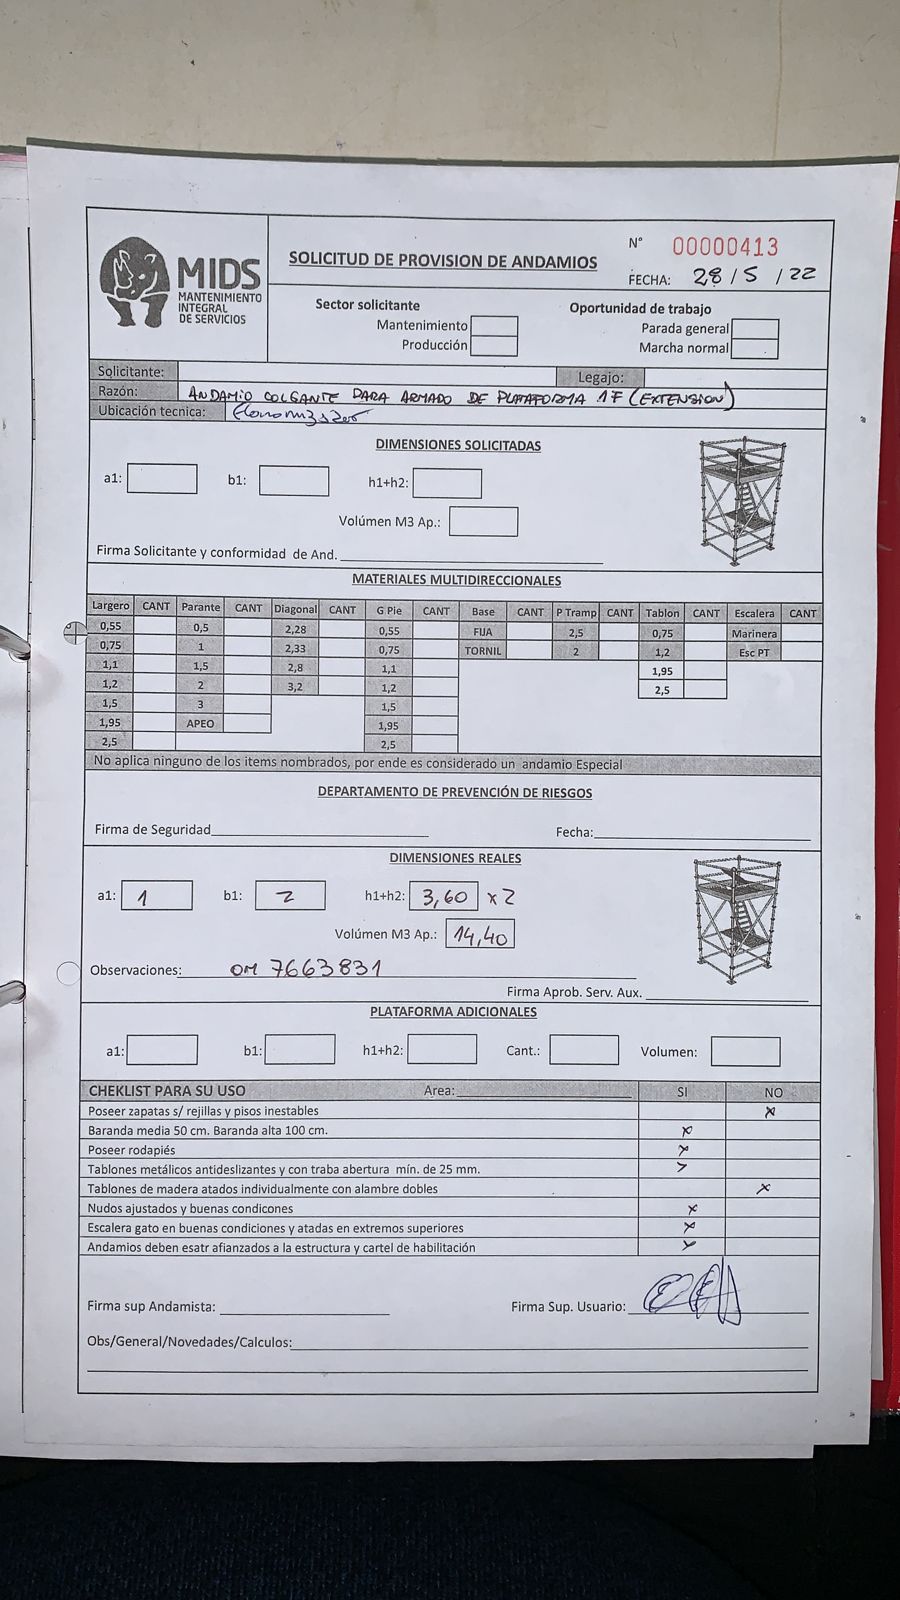 MIDS
MANTENIMIENTO
INTEGRAL
DE SERVICIOS
SOLICITUD DE PROVISION DE ANDAMIOS
N° 00000413
FECHA: 28 / 5 / 22
Sector solicitante
Mantenimiento
Producción
Oportunidad de trabajo
Parada general
Marcha normal
Solicitante: Legajo:
Razón: ANDAMIO COLGANTE PARA ARMADO DE PLATAFORMA 1F (EXTENSION)
Ubicación tecnica: Economizador
DIMENSIONES SOLICITADAS
a1: b1: h1+h2:
Volúmen M3 Ap.:
Firma Solicitante y conformidad de And.
MATERIALES MULTIDIRECCIONALES
Largero CANT Parante CANT Diagonal CANT G Pie CANT Base CANT P Tramp CANT Tablon CANT Escalera CANT
0,55 0,5 2,28 0,55 FIJA 2,5 0,75 Marinera
0,75 1 2,33 0,75 TORNIL 2 1,2 Esc PT
1,1 1,5 2,8 1,1 1,95
1,2 2 3,2 1,2 2,5
1,5 3 1,5
1,95 APEO 1,95
2,5 2,5
No aplica ninguno de los items nombrados, por ende es considerado un andamio Especial
DEPARTAMENTO DE PREVENCIÓN DE RIESGOS
Firma de Seguridad Fecha:
DIMENSIONES REALES
a1: 1 b1: 2 h1+h2: 3,60 x 2
Volúmen M3 Ap.: 14,40
Observaciones: OM 7663831
Firma Aprob. Serv. Aux.
PLATAFORMA ADICIONALES
a1: b1: h1+h2: Cant.: Volumen:
CHEKLIST PARA SU USO Area: SI NO
Poseer zapatas s/ rejillas y pisos inestables x
Baranda media 50 cm. Baranda alta 100 cm. x
Poseer rodapiés x
Tablones metálicos antideslizantes y con traba abertura mín. de 25 mm. x
Tablones de madera atados individualmente con alambre dobles x
Nudos ajustados y buenas condicones x
Escalera gato en buenas condiciones y atadas en extremos superiores x
Andamios deben esatr afianzados a la estructura y cartel de habilitación x
Firma sup Andamista: Firma Sup. Usuario:
Obs/General/Novedades/Calculos: